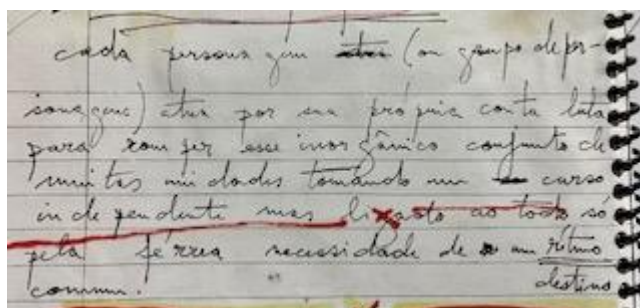 cada personagem (ou grupo de per-
sonagens) atua por sua própria conta luta
para romper esse inorgânico conjunto de
muitas unidades tomando um curso
independente mas ligado ao todo só
pela férrea necessidade de um ritmo
comum. destino